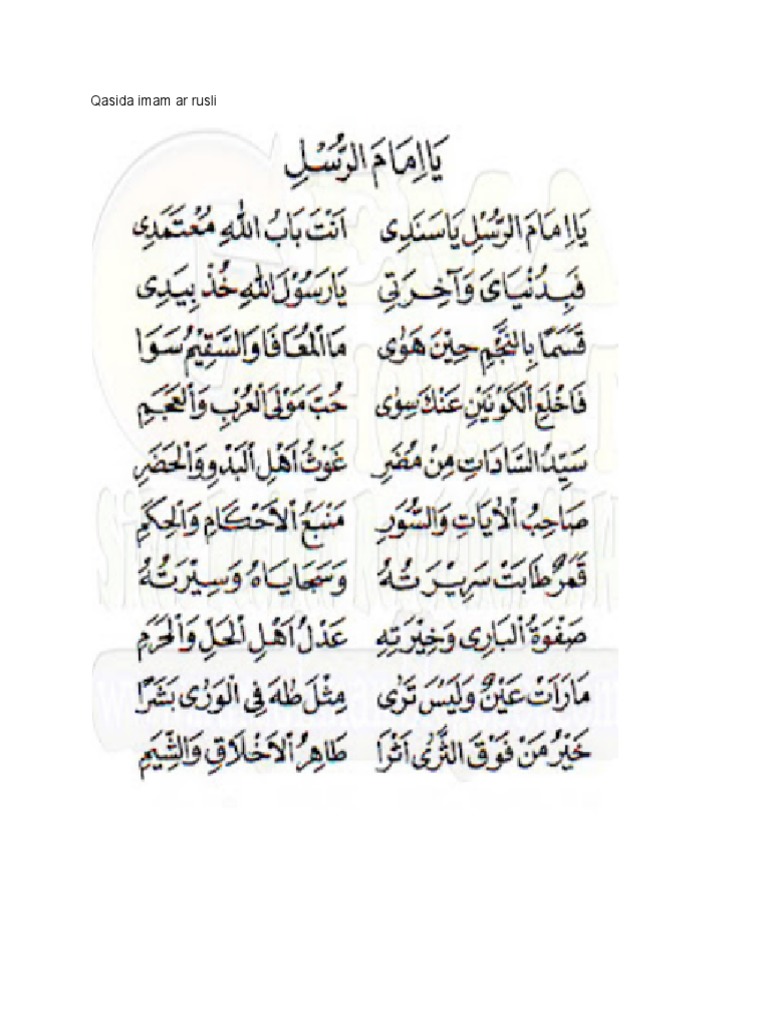 Qasida imam ar rusli
يَا اِمَامَ الرُّسْلِ
يَا اِمَامَ الرُّسْلِ يَا سَنَدِى اَنْتَ بَابُ اللهِ مُعْتَمَدِى
فَبِدُنْيَاىَ وَآخِرَتِى يَارَسُوْلَ اللهِ خُذْ بِيَدِى
قَسَمًا بِالنَّجْمِ حِيْنَ هَوٰى مَاالْمُعَافَا وَالسَّقِيْمُ سَوَا
فَاخْلَعِ الْكَوْنَيْنِ عَنْكَ سِوٰى حُبَّ مَوْلَى الْعُرْبِ وَالْعَجَمِ
سَيِّدُ السَّادَاتِ مِنْ مُضَرِ غَوْثُ اَهْلِ الْبَدْوِ وَالْحَضَرِ
صَاحِبُ الْاٰيَاتِ وَالسُّوَرِ مَنْبَعُ الْاَحْكَامِ وَالْحِكَمِ
قَمَرٌ طَابَتْ سَرِيْرَتُهُ وَسَجَايَاهُ وَسِيْرَتُهُ
صَفْوَةُ الْبَارِى وَخِيْرَتِهِ عَدْلُ اَهْلِ الْحَلِّ وَالْحَرَمِ
مَارَاَتْ عَيْنٌ وَلَيْسَ تَرٰى مِثْلَ طٰهَ فِى الْوَرٰى بَشَرًا
خَيْرُ مَنْ فَوْقَ الثَّرٰى اَثَرًا طَاهِرُ الْاَخْلَاقِ وَالشِّيَمِ